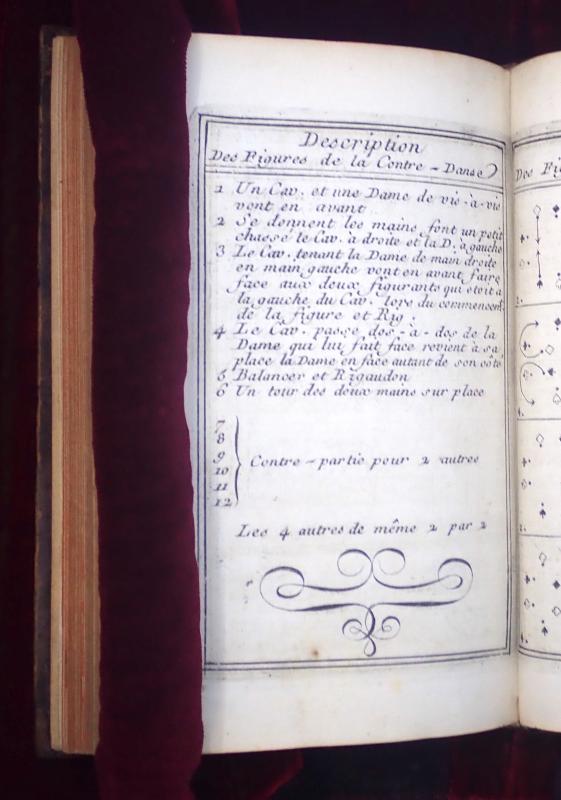 Description
Des Figures de la Contre-Danse
1 Un Cav. et une Dame de vis-à-vis
vont en avant
2 Se donnent les mains, font un petit
chassé le Cav. à droite et la D. à gauche
3 Le Cav. tenant la Dame de main droite
en main gauche vont en avant faire
face aux deux figurants qui etoit à
la gauche du Cav. lors du commencent.
de la figure et Rig.
4 Le Cav. passe dos-à-dos de la
Dame qui lui fait face revient à sa
place la Dame en face autant de son côté
5 Balancer et Rigaudon
6 Un tour des deux mains sur place
7
8
9
10
11
12
Contre-partie pour 2 autres
Les 4 autres de même 2 par 2
Des Fi